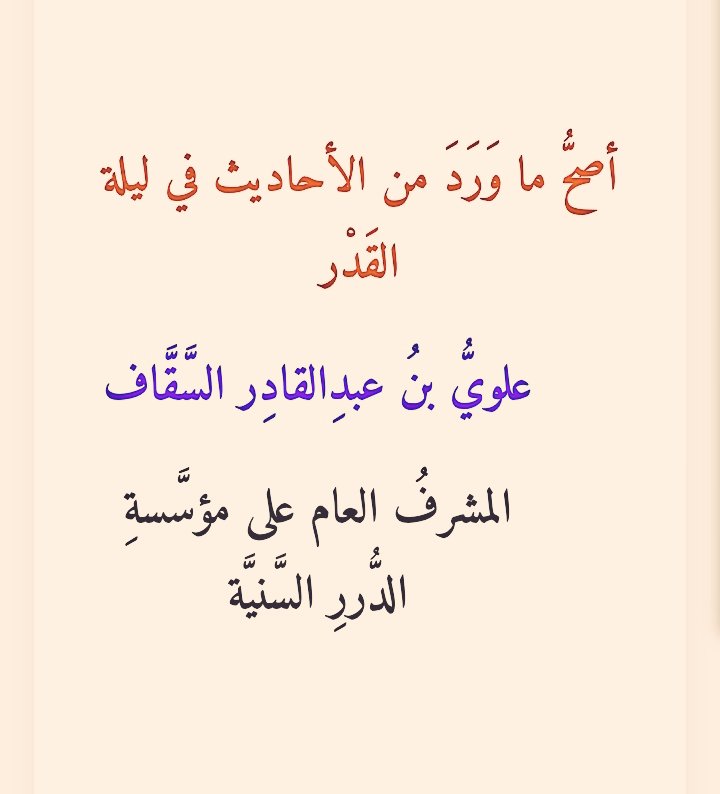 أصحُّ ما وَرَدَ من الأحاديث في ليلة
القَدْر
علويُّ بنُ عبدِالقادِر السَّقَّاف
المشرفُ العام على مؤسَّسةِ
الدُّررِ السَّنيَّة